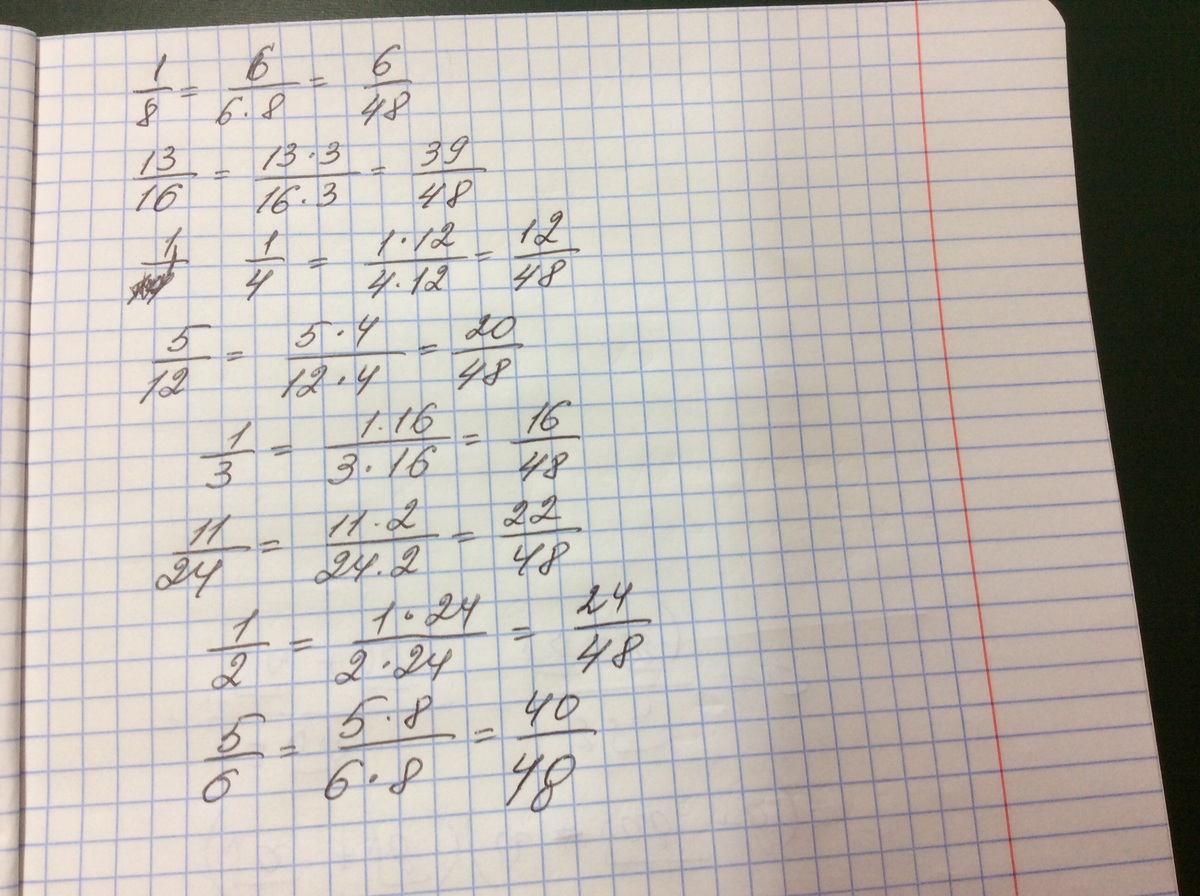 1/8 = 6/6·8 = 6/48
13/16 = 13·3/16·3 = 39/48
1/ 1/4 = 1·12/4·12 = 12/48
5/12 = 5·4/12·4 = 20/48
1/3 = 1·16/3·16 = 16/48
11/24 = 11·2/24·2 = 22/48
1/2 = 1·24/2·24 = 24/48
5/6 = 5·8/6·8 = 40/48